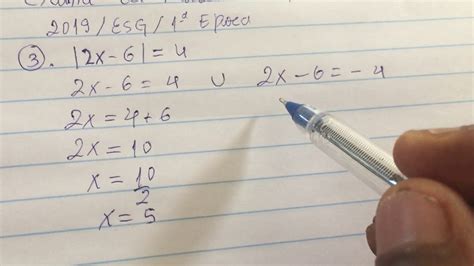 2019/ESG/1ª Época
3. |2x-6|=4
2x-6=4 ∪ 2x-6=-4
2x=4+6
2x=10
x=10/2
x=5